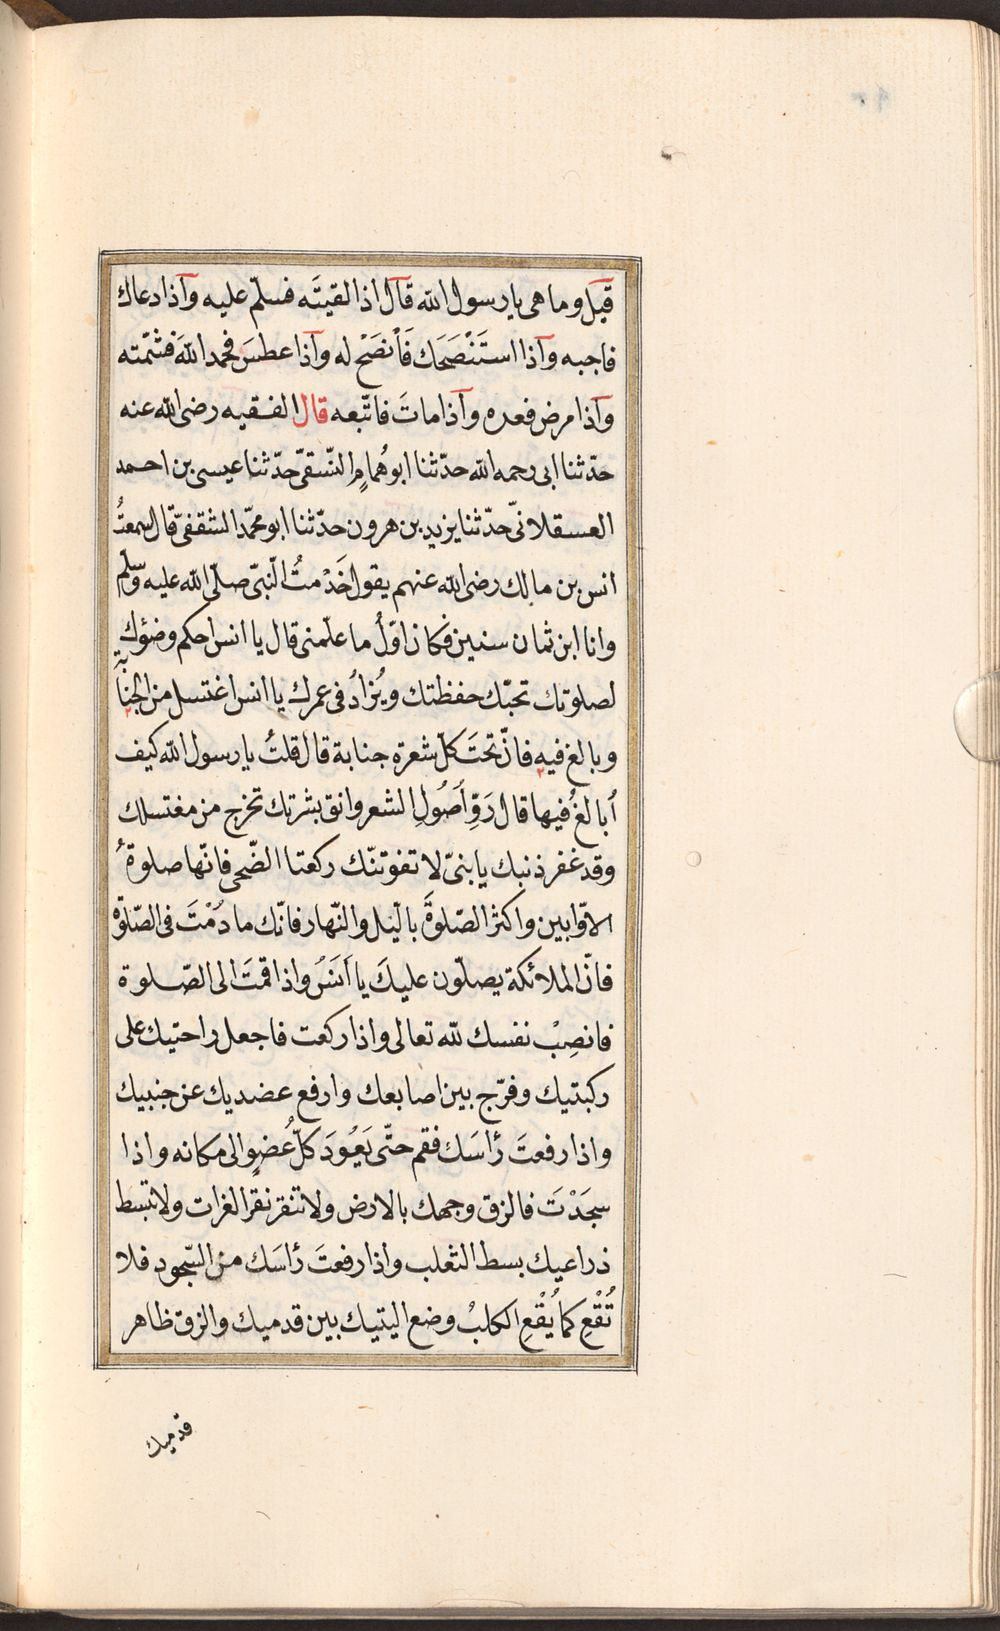 قيل وما هى يا رسول الله قال اذا لقيتَه فسلّم عليه وآذا دعاك
فاجبه وآذا استَنْصَحَك فَأنصَحْ له وآذا عطسَ فحمد اللهَ فشمّته
وآذا مرض فعده وآذا ماتَ فاتّبعه قال الفقيه رضى الله عنه
حدّثنا ابى رحمه الله حدّثنا ابو هُمامٍ النّسقىّ حدّثنا عيسى بن احمد
العسقلانىّ حدّثنا يزيد بن هرون حدّثنا ابو محمّد الشقفىّ قال سمعتُ
انس بن مالك رضى الله عنهم يقول خَدْمتُ النّبىّ صلّى الله عليه وسلّم
وانا ابن ثمان سنين فكان اوّلُ ما علّمنى قال يا انس احكم وضوئك
لصلوتك تحبّك حفظتك ويُزادُ فى عمرك يا انس اغتسل من الجنابة
وبالغ فيه فانّ تحتَ كلّ شعرة جنابة قال قلتُ يا رسول الله كيف
اُبالغُ فيها قال رَوِّ اُصُولِ الشعر وانق بشرتك تخرج من مغتسلك
وقد غفر ذنبك يا بنىّ لا تفوتنّك ركعتا الضّحى فانّها صلوةُ
الاوّابين واكثر الصّلوةَ بالّيل والنّهار فانّك ما دُمْتَ فى الصّلوة
فانّ الملائكة يصلّون عليكَ يا اَنَسُ واذا قمتَ الى الصّلوة
فانصِبْ نفسك لله تعالى واذا ركعت فاجعل راحتيك على
ركبتيك وفرّج بين اصابعك وارفع عضديك عن جنبيك
واذا رفعتَ رأسَك فقم حتّى يَعُودَ كلّ عُضوٍ الى مكانه واذا
سجَدْتَ فالزق وجهك بالارض ولا تنقر نقر الغراب ولا تبسط
ذراعيك بسط الثعلب واذا رفعتَ رأسَك من السّجود فلا
تُقْعِ كما يُقْعِ الكلبُ وضع اليتيك بين قدميك والزق ظاهر
قدميك